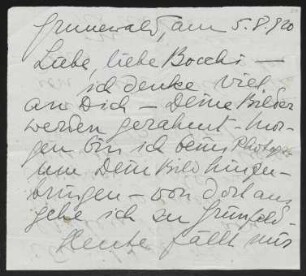 Grunewald, am 5.8.920
Liebe, liebe Bocchi —
ich denke viel
an Dich — Deine Bilder
werden gerahmt — mor-
gen bin ich beim Photogr.
um Dein Bild hinzu-
bringen — von dort aus
gehe ich zu Grünfeld —
Heute fällt mir